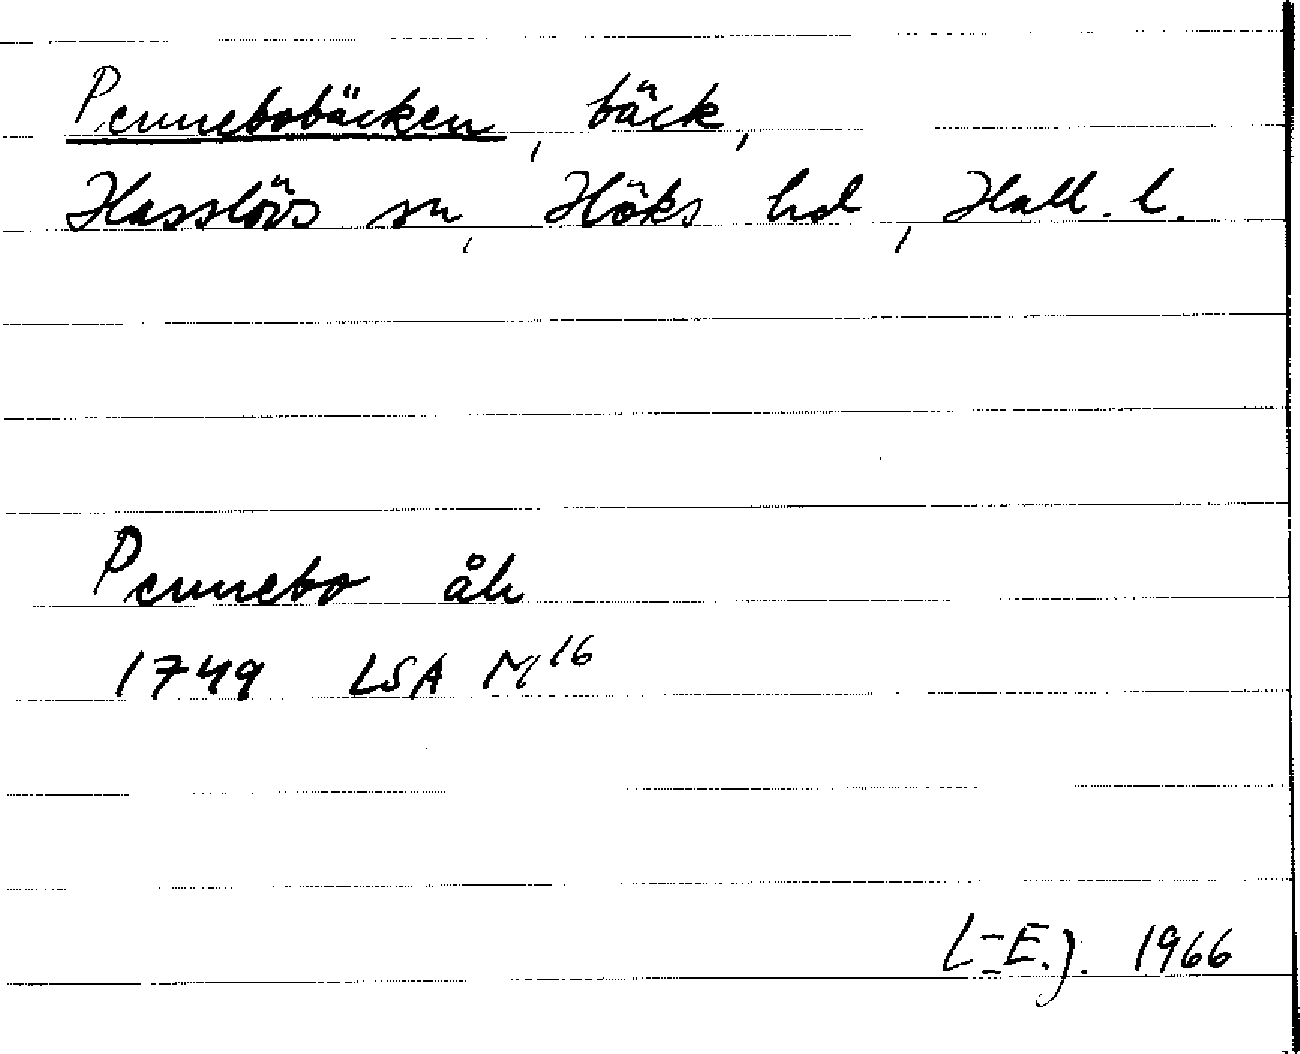 Pennebobäcken, bäck,
Hasslövs sn, Höks hd, Hall. l.
Pennebo åh
1749 LSA M16
L-E.J. 1966